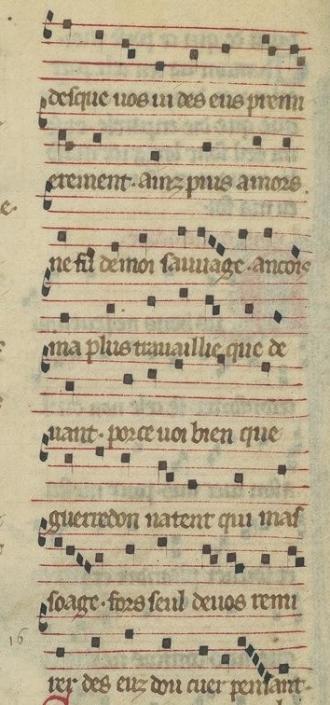 desque uos ui des eus premi
erement. ainz puis amors
ne fu de moi sauuage. ancois
ma plus trauaillie que de
uant. por ce uoi bien que
guerredon natent qui mas
soage. fors seul de uos remi
rer des euz dou cuer pensant.
16